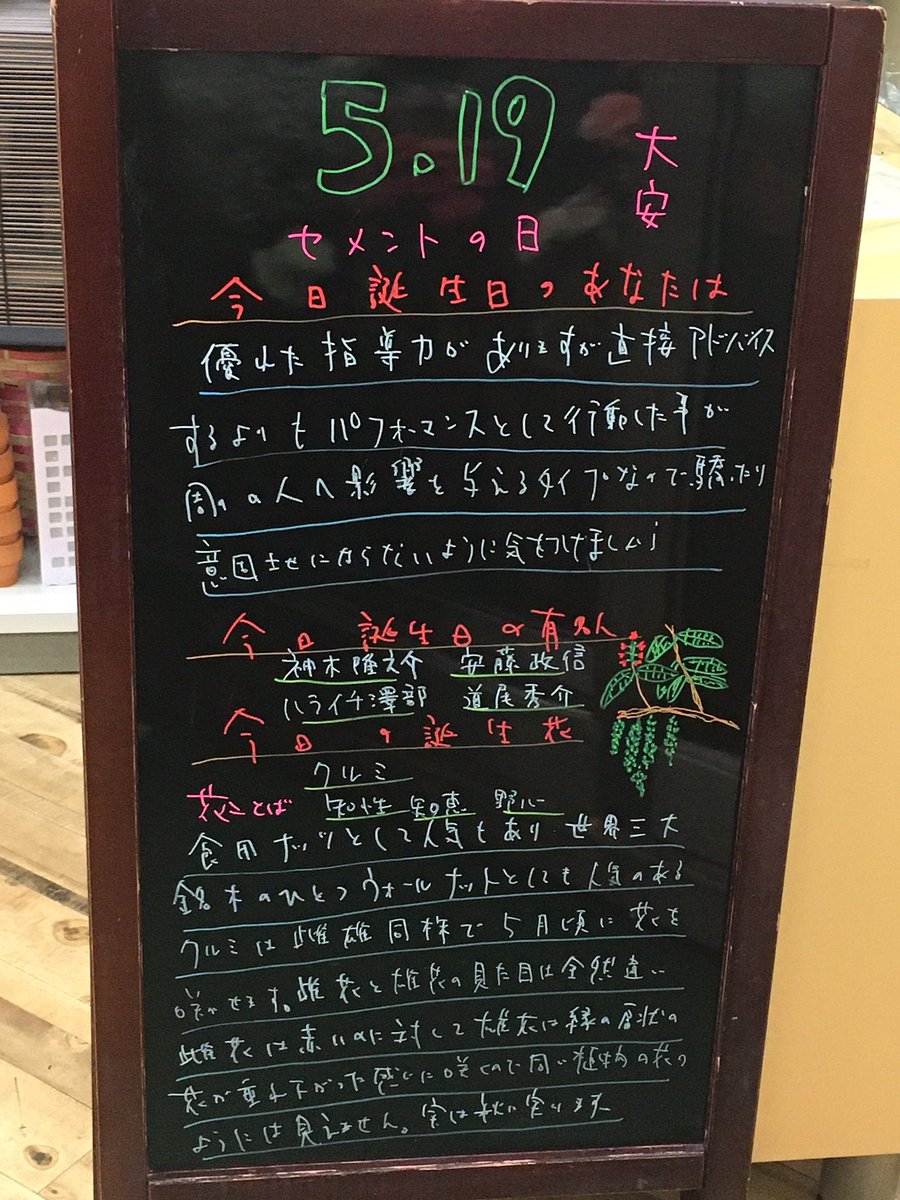 5.19
大安
セメントの日
今日誕生日のあなたは
優れた指導力がありますが直接アドバイス
するよりもパフォーマンスとして行動した事が
周りの人へ影響を与えるタイプなので驕ったり
意固地にならないように気をつけましょう
今日誕生日の有名人
神木隆之介 安藤政信
ハライチ澤部 道尾秀介
今日の誕生花
クルミ
花ことば 知性 知恵 野心
食用ナッツとして人気もあり世界三大
銘木のひとつウォールナットとしても人気のある
クルミは雌雄同株で5月頃に花を
咲かせます。雌花と雄花の見た目は全然違い
雌花は赤いのに対して雄花は緑の房状の
花が垂れ下がった感じに咲くので同じ植物の花の
ようには見えません。実は秋に実ります